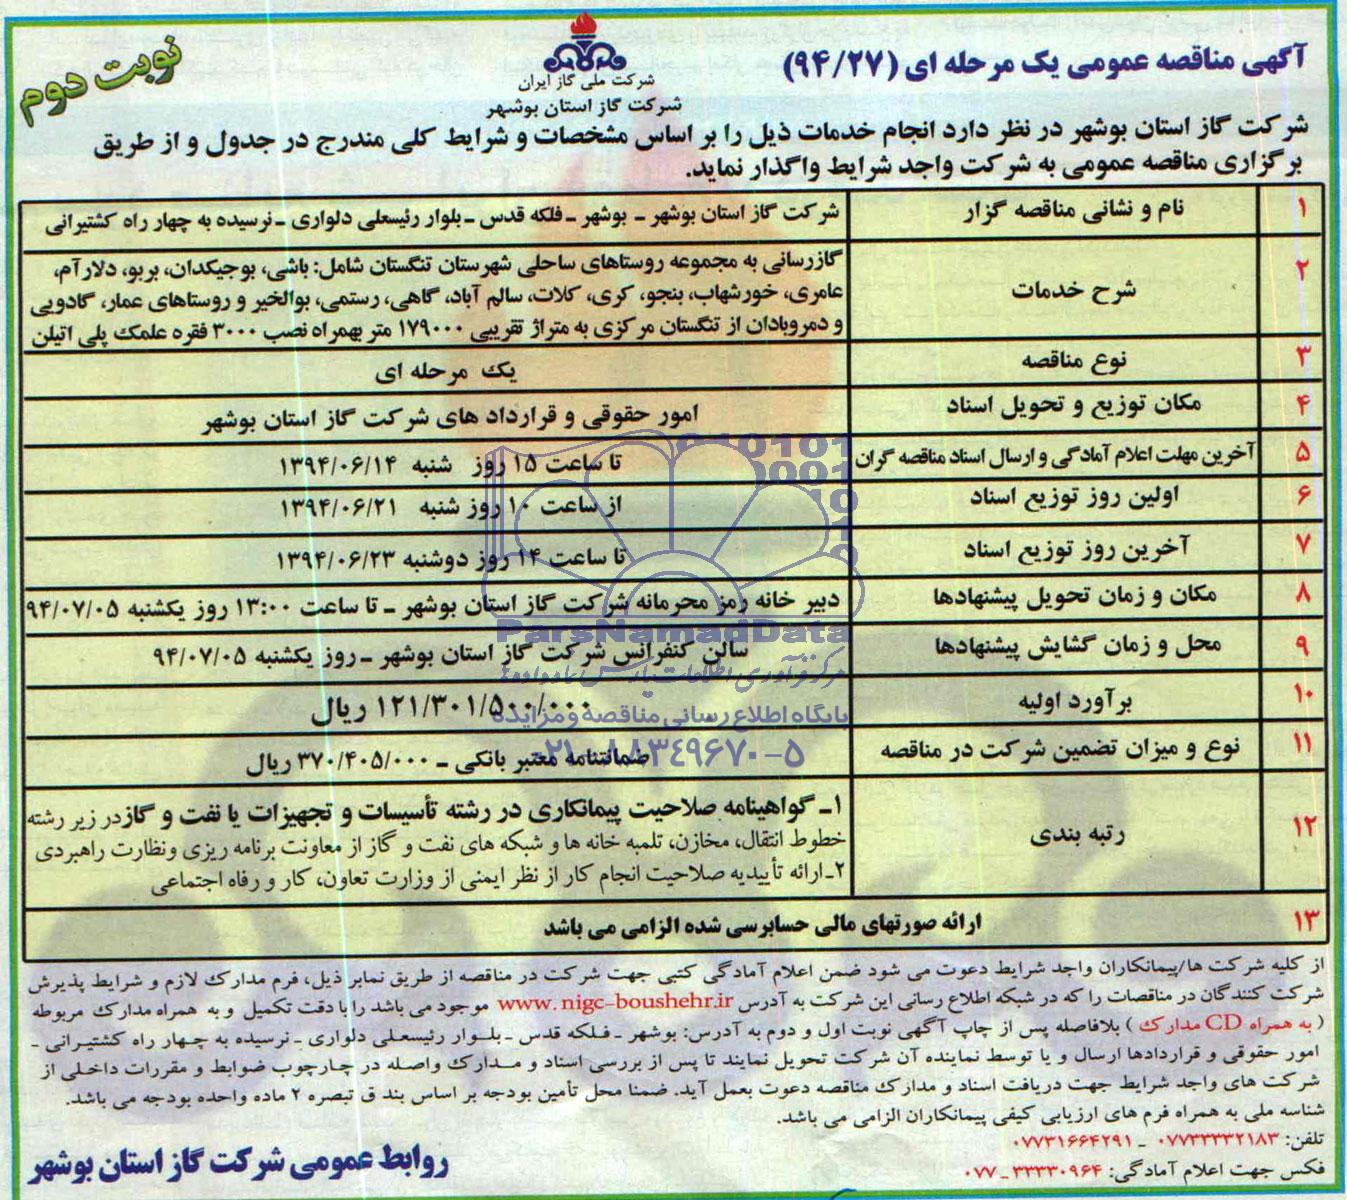 آگهی مناقصه عمومی یک مرحله ای (۹۴/۲۷)
شرکت ملی گاز ایران
شرکت گاز استان بوشهر
نوبت دوم
شرکت گاز استان بوشهر در نظر دارد انجام خدمات ذیل را بر اساس مشخصات و شرایط کلی مندرج در جدول و از طریق
برگزاری مناقصه عمومی به شرکت واجد شرایط واگذار نماید.
۱ نام و نشانی مناقصه گزار شرکت گاز استان بوشهر - بوشهر - فلکه قدس - بلوار رئیسعلی دلواری - نرسیده به چهار راه کشتیرانی
۲ شرح خدمات گازرسانی به مجموعه روستاهای ساحلی شهرستان تنگستان شامل: باشی، بوجیکدان، بربو، دلارآم،
عامری، خورشهاب، بنجو، کری، کلات، سالم آباد، گاهی، رستمی، بوالخیر و روستاهای عمار، گادویی
و دمروبادان از تنگستان مرکزی به متراژ تقریبی ۱۷۹۰۰۰ متر بهمراه نصب ۳۰۰۰ فقره علمک پلی اتیلن
۳ نوع مناقصه یک مرحله ای
۴ مکان توزیع و تحویل اسناد امور حقوقی و قرارداد های شرکت گاز استان بوشهر
۵ آخرین مهلت اعلام آمادگی و ارسال اسناد مناقصه گران تا ساعت ۱۵ روز شنبه ۱۳۹۴/۰۶/۱۴
۶ اولین روز توزیع اسناد از ساعت ۱۰ روز شنبه ۱۳۹۴/۰۶/۲۱
۷ آخرین روز توزیع اسناد تا ساعت ۱۴ روز دوشنبه ۱۳۹۴/۰۶/۲۳
۸ مکان و زمان تحویل پیشنهادها دبیر خانه رمز محرمانه شرکت گاز استان بوشهر - تا ساعت ۱۳:۰۰ روز یکشنبه ۹۴/۰۷/۰۵
۹ محل و زمان گشایش پیشنهادها سالن کنفرانس شرکت گاز استان بوشهر - روز یکشنبه ۹۴/۰۷/۰۵
۱۰ برآورد اولیه ۱۲۱/۳۰۱/۵۰۰/۰۰۰ ریال
۱۱ نوع و میزان تضمین شرکت در مناقصه ضمانتنامه معتبر بانکی - ۳۷۰/۴۰۵/۰۰۰ ریال
۱۲ رتبه بندی ۱- گواهینامه صلاحیت پیمانکاری در رشته تأسیسات و تجهیزات یا نفت و گاز در زیر رشته
خطوط انتقال، مخازن، تلمبه خانه ها و شبکه های نفت و گاز از معاونت برنامه ریزی ونظارت راهبردی
۲- ارائه تأییدیه صلاحیت انجام کار از نظر ایمنی از وزارت تعاون، کار و رفاه اجتماعی
۱۳ ارائه صورتهای مالی حسابرسی شده الزامی می باشد
ParsNamadData
پایگاه اطلاع رسانی مناقصه و مزایده
۰۲۱-۸۸۳۴۹۶۷۰-۵
از کلیه شرکت ها/پیمانکاران واجد شرایط دعوت می شود ضمن اعلام آمادگی کتبی جهت شرکت در مناقصه از طریق نمابر ذیل، فرم مدارک لازم و شرایط پذیرش
شرکت کنندگان در مناقصات را که در شبکه اطلاع رسانی این شرکت به آدرس www.nigc-boushehr.ir موجود می باشد را با دقت تکمیل و به همراه مدارک مربوطه
( به همراه CD مدارک ) بلافاصله پس از چاپ آگهی نوبت اول و دوم به آدرس: بوشهر - فلکه قدس - بلوار رئیسعلی دلواری - نرسیده به چهار راه کشتیرانی -
امور حقوقی و قراردادها ارسال و یا توسط نماینده آن شرکت تحویل نمایند تا پس از بررسی اسناد و مدارک واصله در چارچوب ضوابط و مقررات داخلی از
شرکت های واجد شرایط جهت دریافت اسناد و مدارک مناقصه دعوت بعمل آید. ضمنا محل تأمین بودجه بر اساس بند ق تبصره ۲ ماده واحده بودجه می باشد.
شناسه ملی به همراه فرم های ارزیابی کیفی پیمانکاران الزامی می باشد.
تلفن: ۰۷۷۳۳۳۳۲۱۸۳ - ۰۷۷۳۱۶۶۴۲۹۱
فکس جهت اعلام آمادگی: ۳۳۳۳۰۹۶۴-۰۷۷
روابط عمومی شرکت گاز استان بوشهر